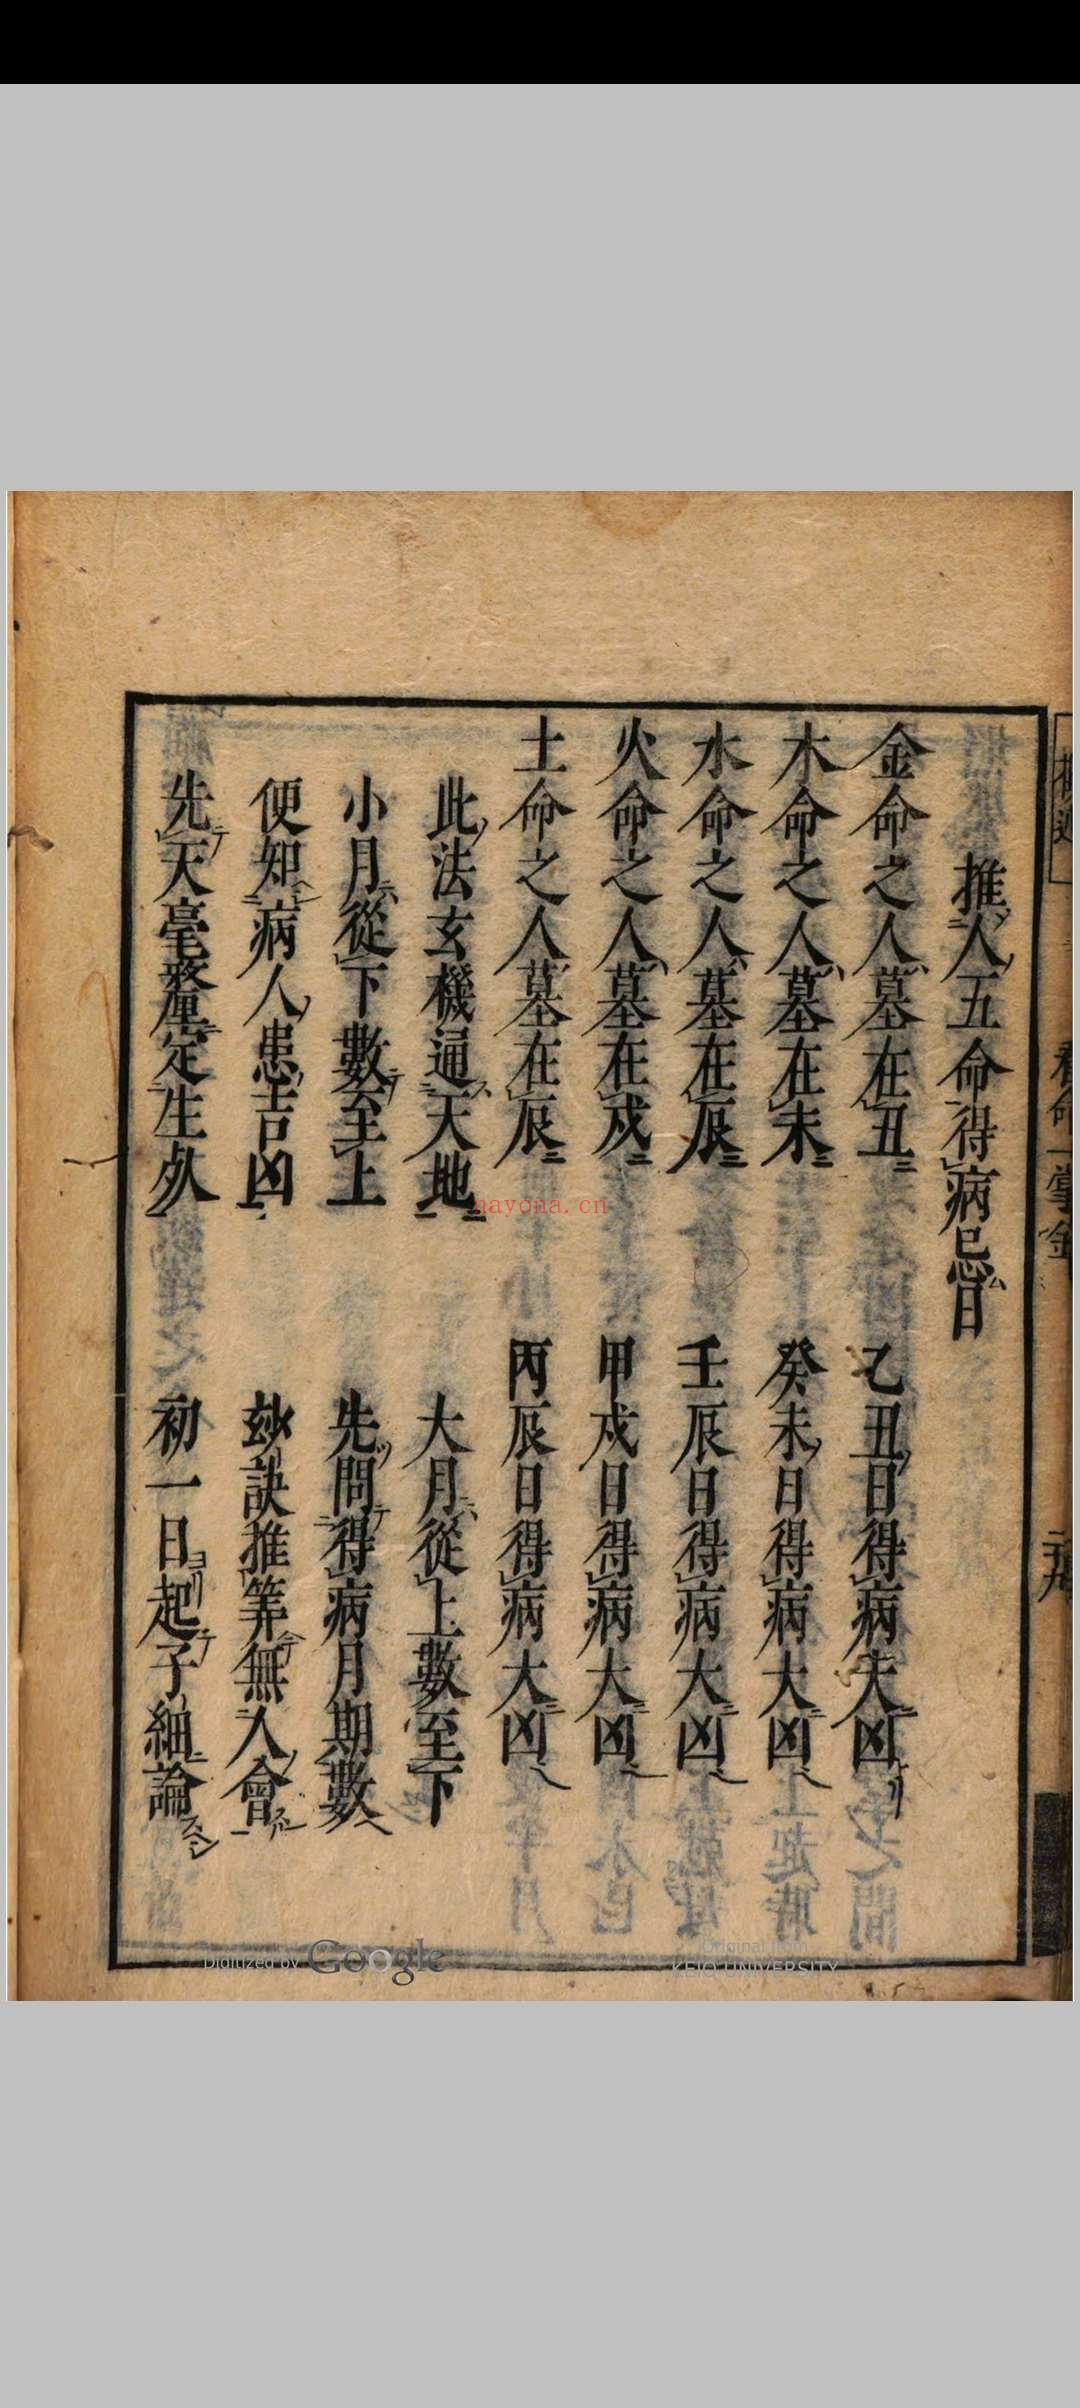 推人五命得病忌日
金命之人墓在丑　乙丑日得病大凶
木命之人墓在未　癸未日得病大凶
水命之人墓在辰　壬辰日得病大凶
火命之人墓在戌　甲戌日得病大凶
土命之人墓在辰　丙辰日得病大凶
此法玄機通天地　大月從上數至下
小月從下數至上　先問得病月期數
便知病人患吉凶　玅訣推筭無人會
先天毫釐定生死　初一日起子細論
nayona.cn
Digitized by Google
Original from
KEIO UNIVERSITY